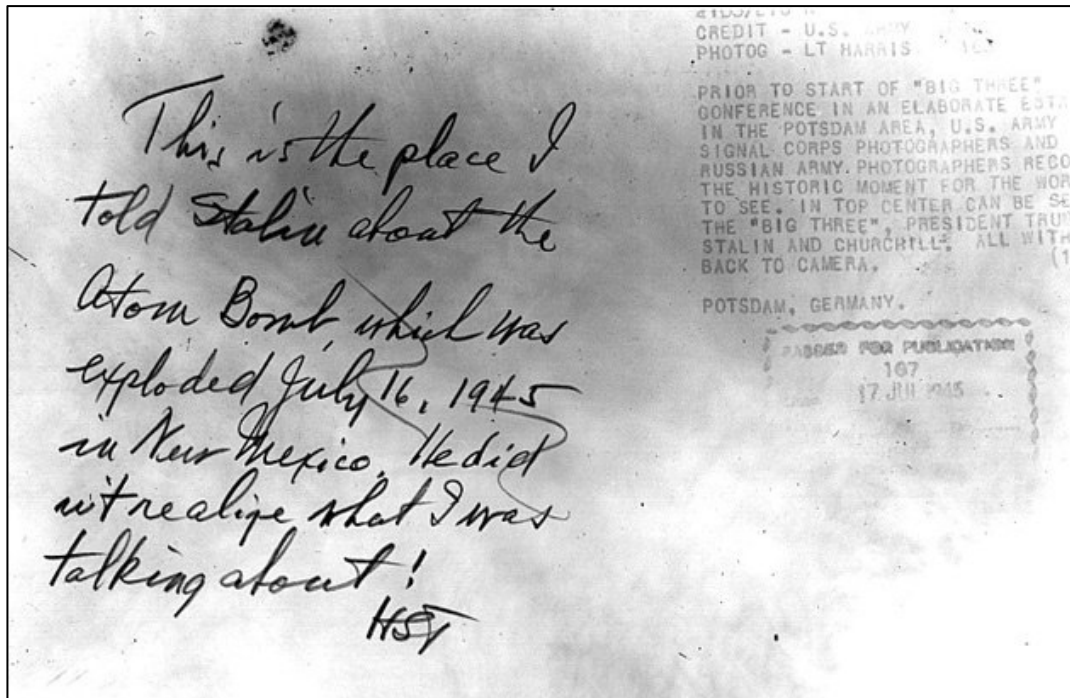 This is the place I
told Stalin about the
Atom Bomb, which was
exploded July 16, 1945
in New Mexico. He did
n't realize what I was
talking about!
HST
CREDIT - U.S. ARMY
PHOTOG - LT HARRIS
PRIOR TO START OF "BIG THREE"
CONFERENCE IN AN ELABORATE
IN THE POTSDAM AREA, U.S. ARMY
SIGNAL CORPS PHOTOGRAPHERS AND
RUSSIAN ARMY PHOTOGRAPHERS RECO
THE HISTORIC MOMENT FOR THE WOR
TO SEE. IN TOP CENTER CAN BE SE
THE "BIG THREE", PRESIDENT TRU
STALIN AND CHURCHILL, ALL WITH
BACK TO CAMERA. (1
POTSDAM, GERMANY.
PASSED FOR PUBLICATION
167
17 JUL 1945